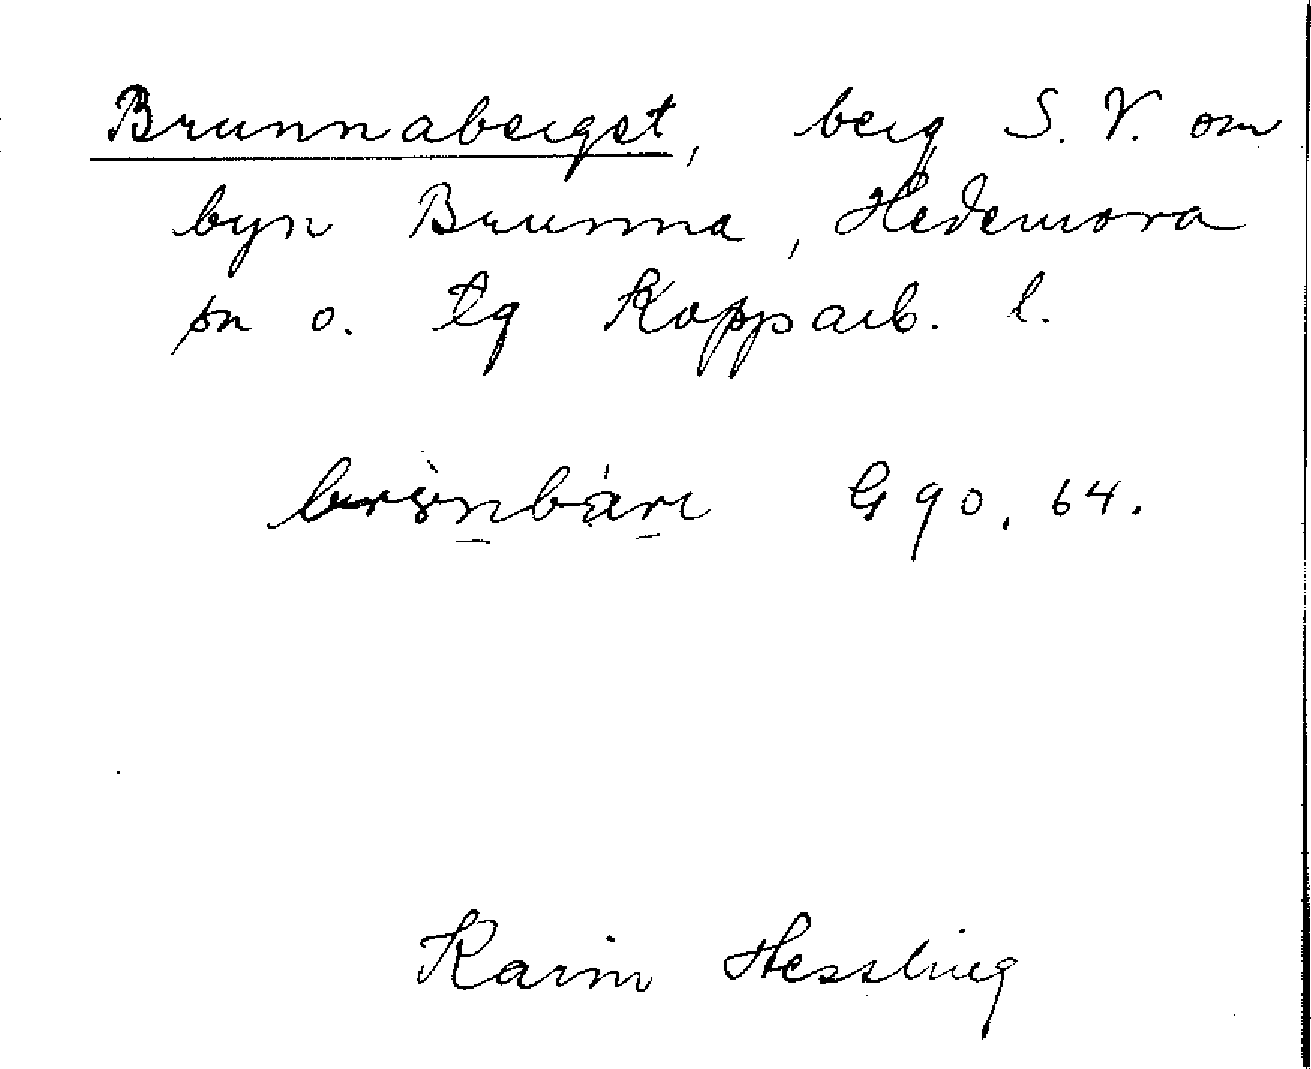 Brunnaberget, berg S.V. om
byn Brunna, Hedemora
sn o. tg Kopparb. l.
G 90. 64.
Karin Hessling